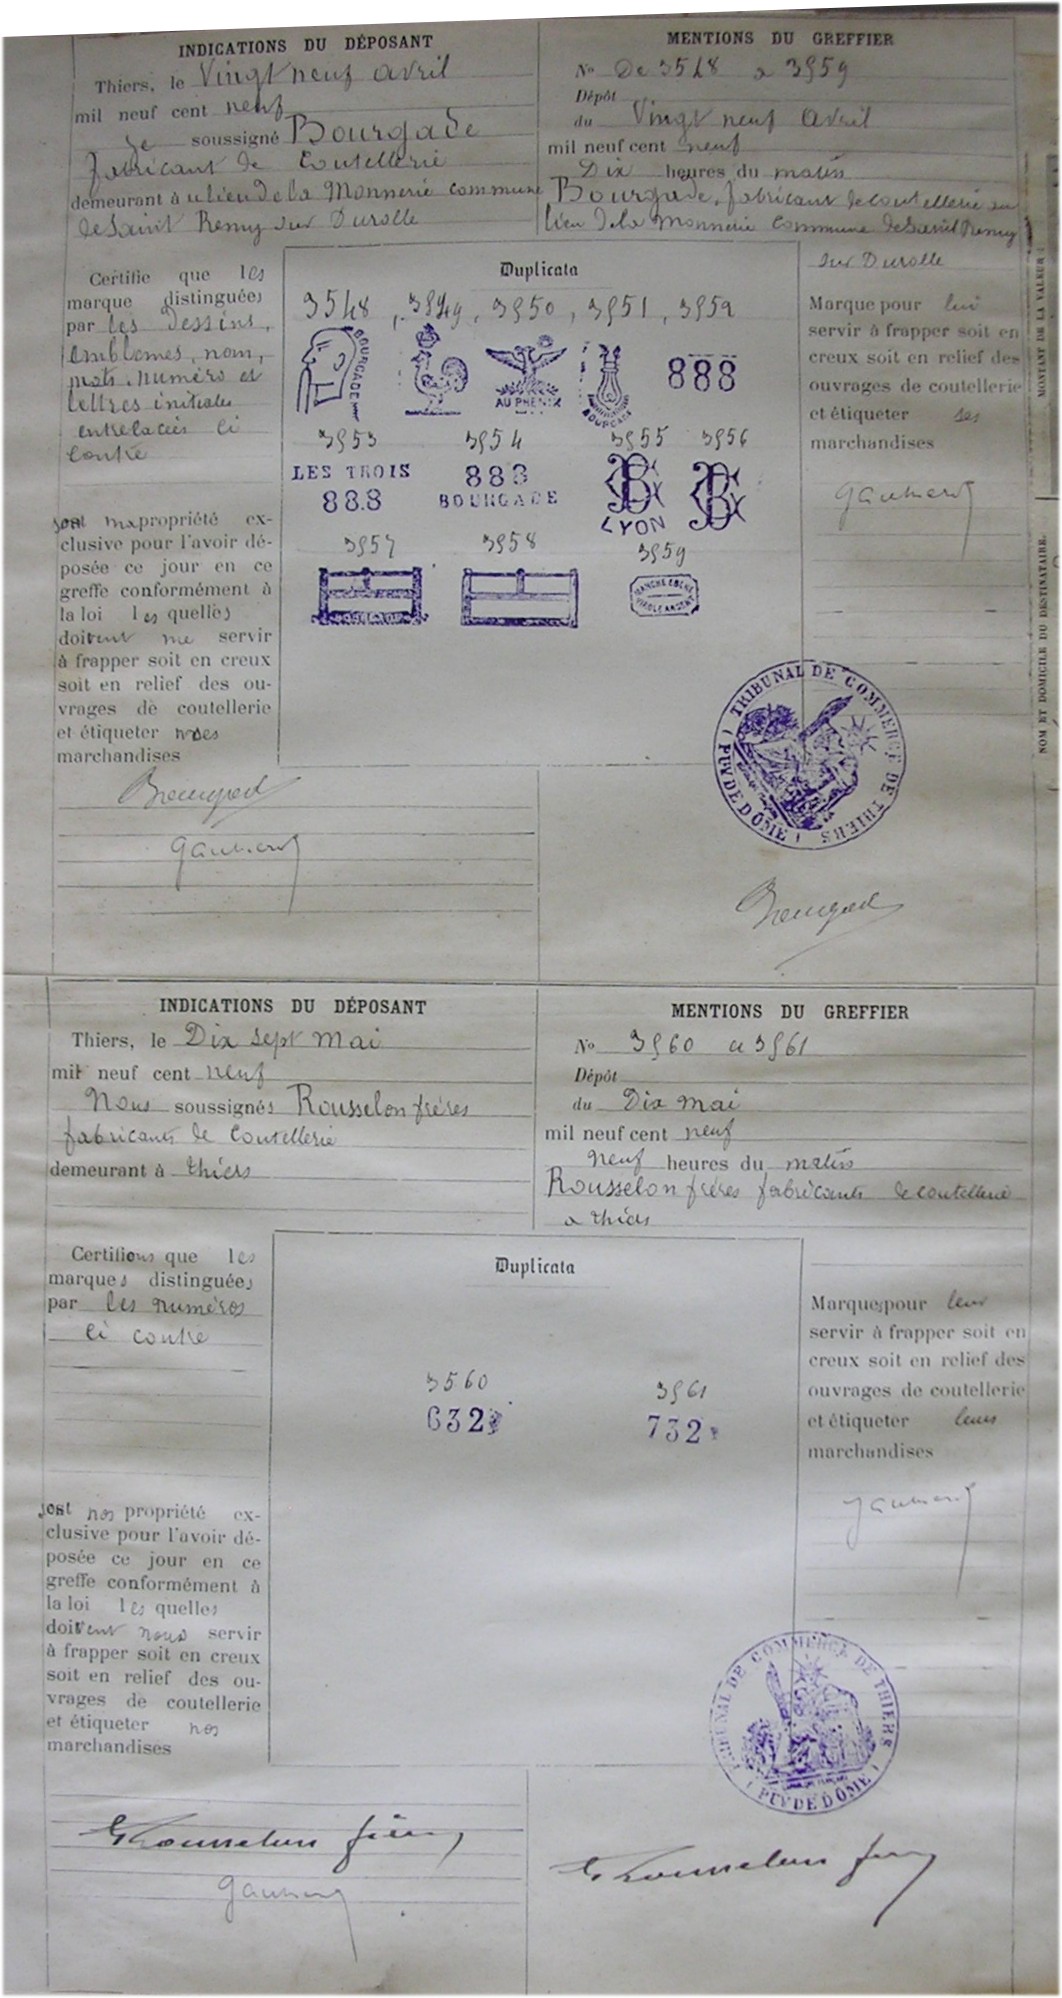 INDICATIONS DU DÉPOSANT
Thiers, le Vingt neuf avril
mil neuf cent neuf
Je soussigné Bourgade
fabricant de Coutellerie
demeurant à u lieu de la Monnerie Commune
de Saint Remy sur Durolle
MENTIONS DU GREFFIER
No De 3548 a 3559
Dépôt
du Vingt neuf Avril
mil neuf cent neuf
Dix heures du matin
Bourgade, fabricant de coutellerie au
lieu de la Monnerie Commune de Saint Remy
sur Durolle
Certifie que les
marque distinguées
par les Dessins,
emblemes, nom,
mots, numéro et
lettres initiales
entrelacées ci
contre
sont ma propriété ex-
clusive pour l'avoir dé-
posée ce jour en ce
greffe conformément à
la loi les quelles
doivent me servir
à frapper soit en creux
soit en relief des ou-
vrages de coutellerie
et étiqueter mes
marchandises
Duplicata
3548, 3549, 3550, 3551, 3552
BOURGADE
AU PHENIX
BOURGADE
888
3553 3554 3555 3556
LES TROIS
888
888
BOURGADE
LYON
3557 3558 3559
MANCHE EBENE
Marque pour lui
servir à frapper soit en
creux soit en relief des
ouvrages de coutellerie
et étiqueter ses
marchandises
TRIBUNAL DE COMMERCE DE THIERS
(PUY DE DÔME)
MONTANT DE LA VALEUR:
NOM ET DOMICILE DU DESTINATAIRE.
INDICATIONS DU DÉPOSANT
Thiers, le Dix sept Mai
mil neuf cent neuf
Nous soussignés Rousselon frères
fabricants de Coutellerie
demeurant à Thiers
MENTIONS DU GREFFIER
No 3560 a 3561
Dépôt
du Dix mai
mil neuf cent neuf
neuf heures du matin
Rousselon frères fabricants de coutellerie
a Thiers
Certifions que les
marques distinguées
par les numéros
ci contre
sont nos propriété ex-
clusive pour l'avoir dé-
posée ce jour en ce
greffe conformément à
la loi les quelles
doivent nous servir
à frapper soit en creux
soit en relief des ou-
vrages de coutellerie
et étiqueter nos
marchandises
Duplicata
3560 3561
632 732
Marques pour leur
servir à frapper soit en
creux soit en relief des
ouvrages de coutellerie
et étiqueter leurs
marchandises
TRIBUNAL DE COMMERCE DE THIERS
(PUY DE DÔME)
Rousselon frères
Rousselon frères